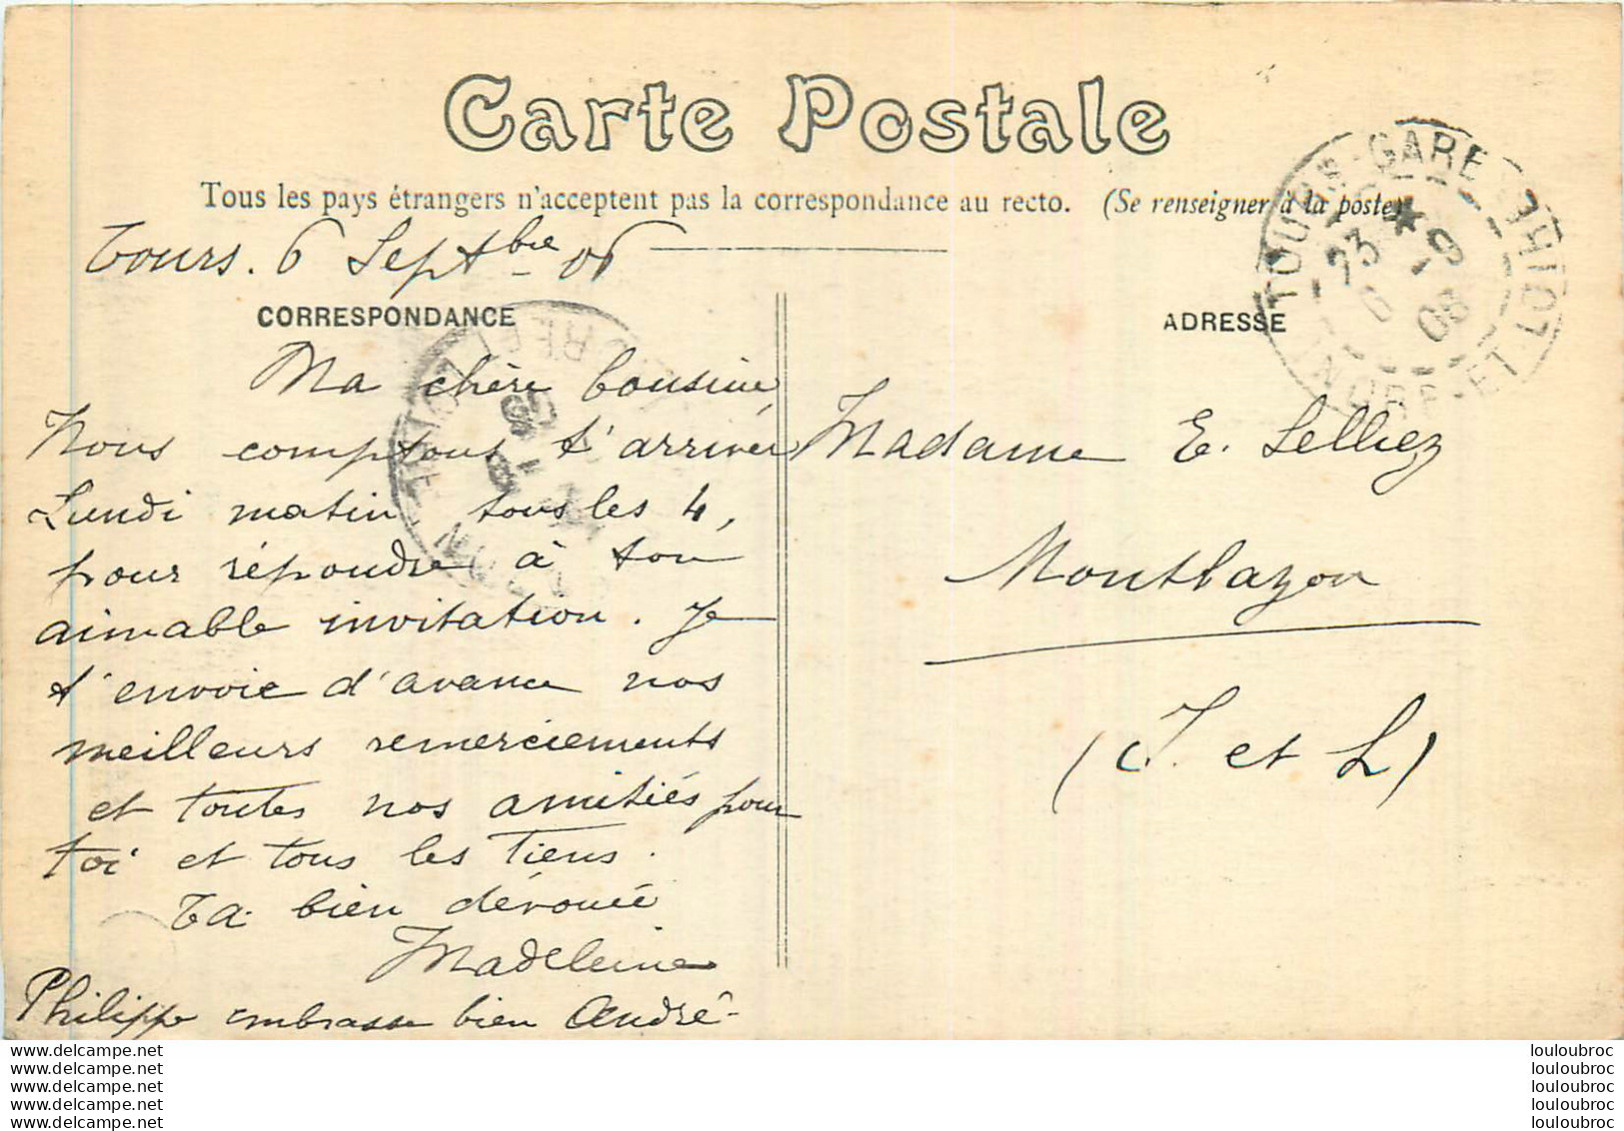 Carte Postale
Tous les pays étrangers n'acceptent pas la correspondance au recto. (Se renseigner à la poste)
Tours. 6 Septbre 06
CORRESPONDANCE
Ma chère Cousine,
Nous comptons t'arriver
Lundi matin, tous les 4,
pour répondre à ton
aimable invitation. Je
t'envoie d'avance nos
meilleurs remerciements
et toutes nos amitiés pour
toi et tous les Tiens.
Ta bien dévouée
Madeleine
Philippe embrasse bien André-
ADRESSE
Madame E. Lelliez
Montbazon
(I. et L)
TOURS-GARE
INDRE-ET-LOIRE
23 * 6 -9 06
www.delcampe.net
www.delcampe.net
www.delcampe.net
www.delcampe.net
www.delcampe.net
louloubroc
louloubroc
louloubroc
louloubroc
louloubroc